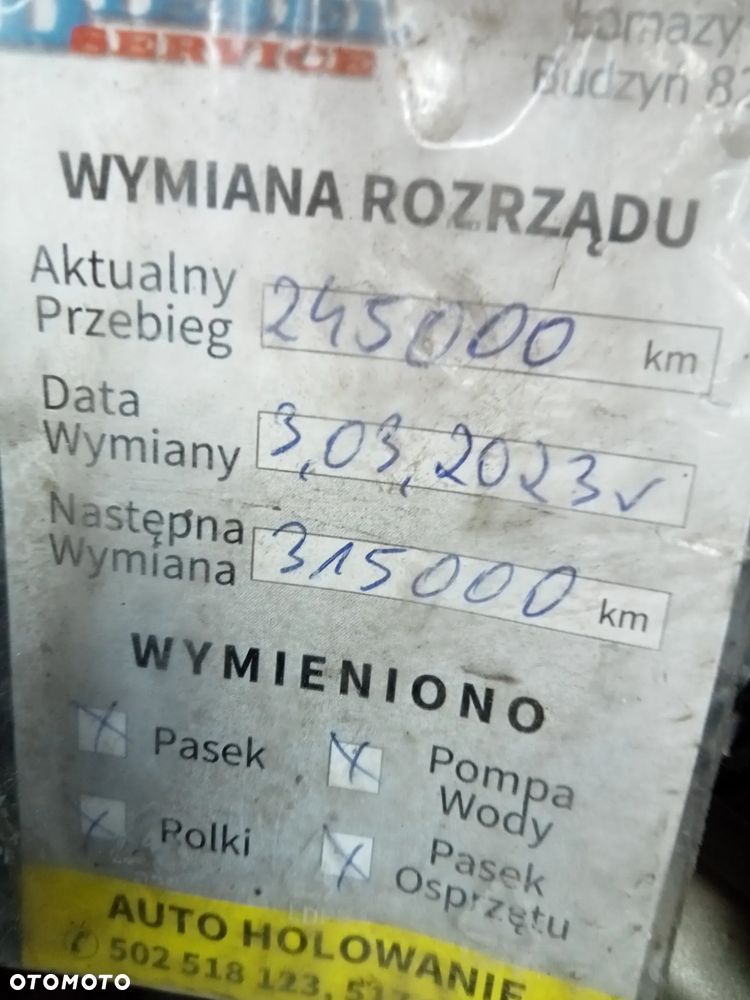 SERVICE
Łomazy
Budzyń 82
WYMIANA ROZRZĄDU
Aktualny
Przebieg 245000 km
Data
Wymiany 3,03,2023 v
Następna
Wymiana 315000 km
WYMIENIONO
X Pasek X Pompa
Wody
X Rolki X Pasek
Osprzętu
AUTO HOLOWANIE
502 518 123, 517
OTOMOTO